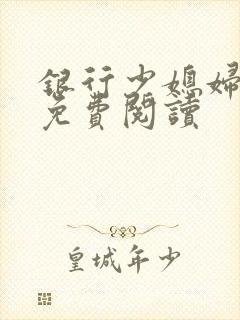 銀行少媳婦
免費閱讀
皇城年少